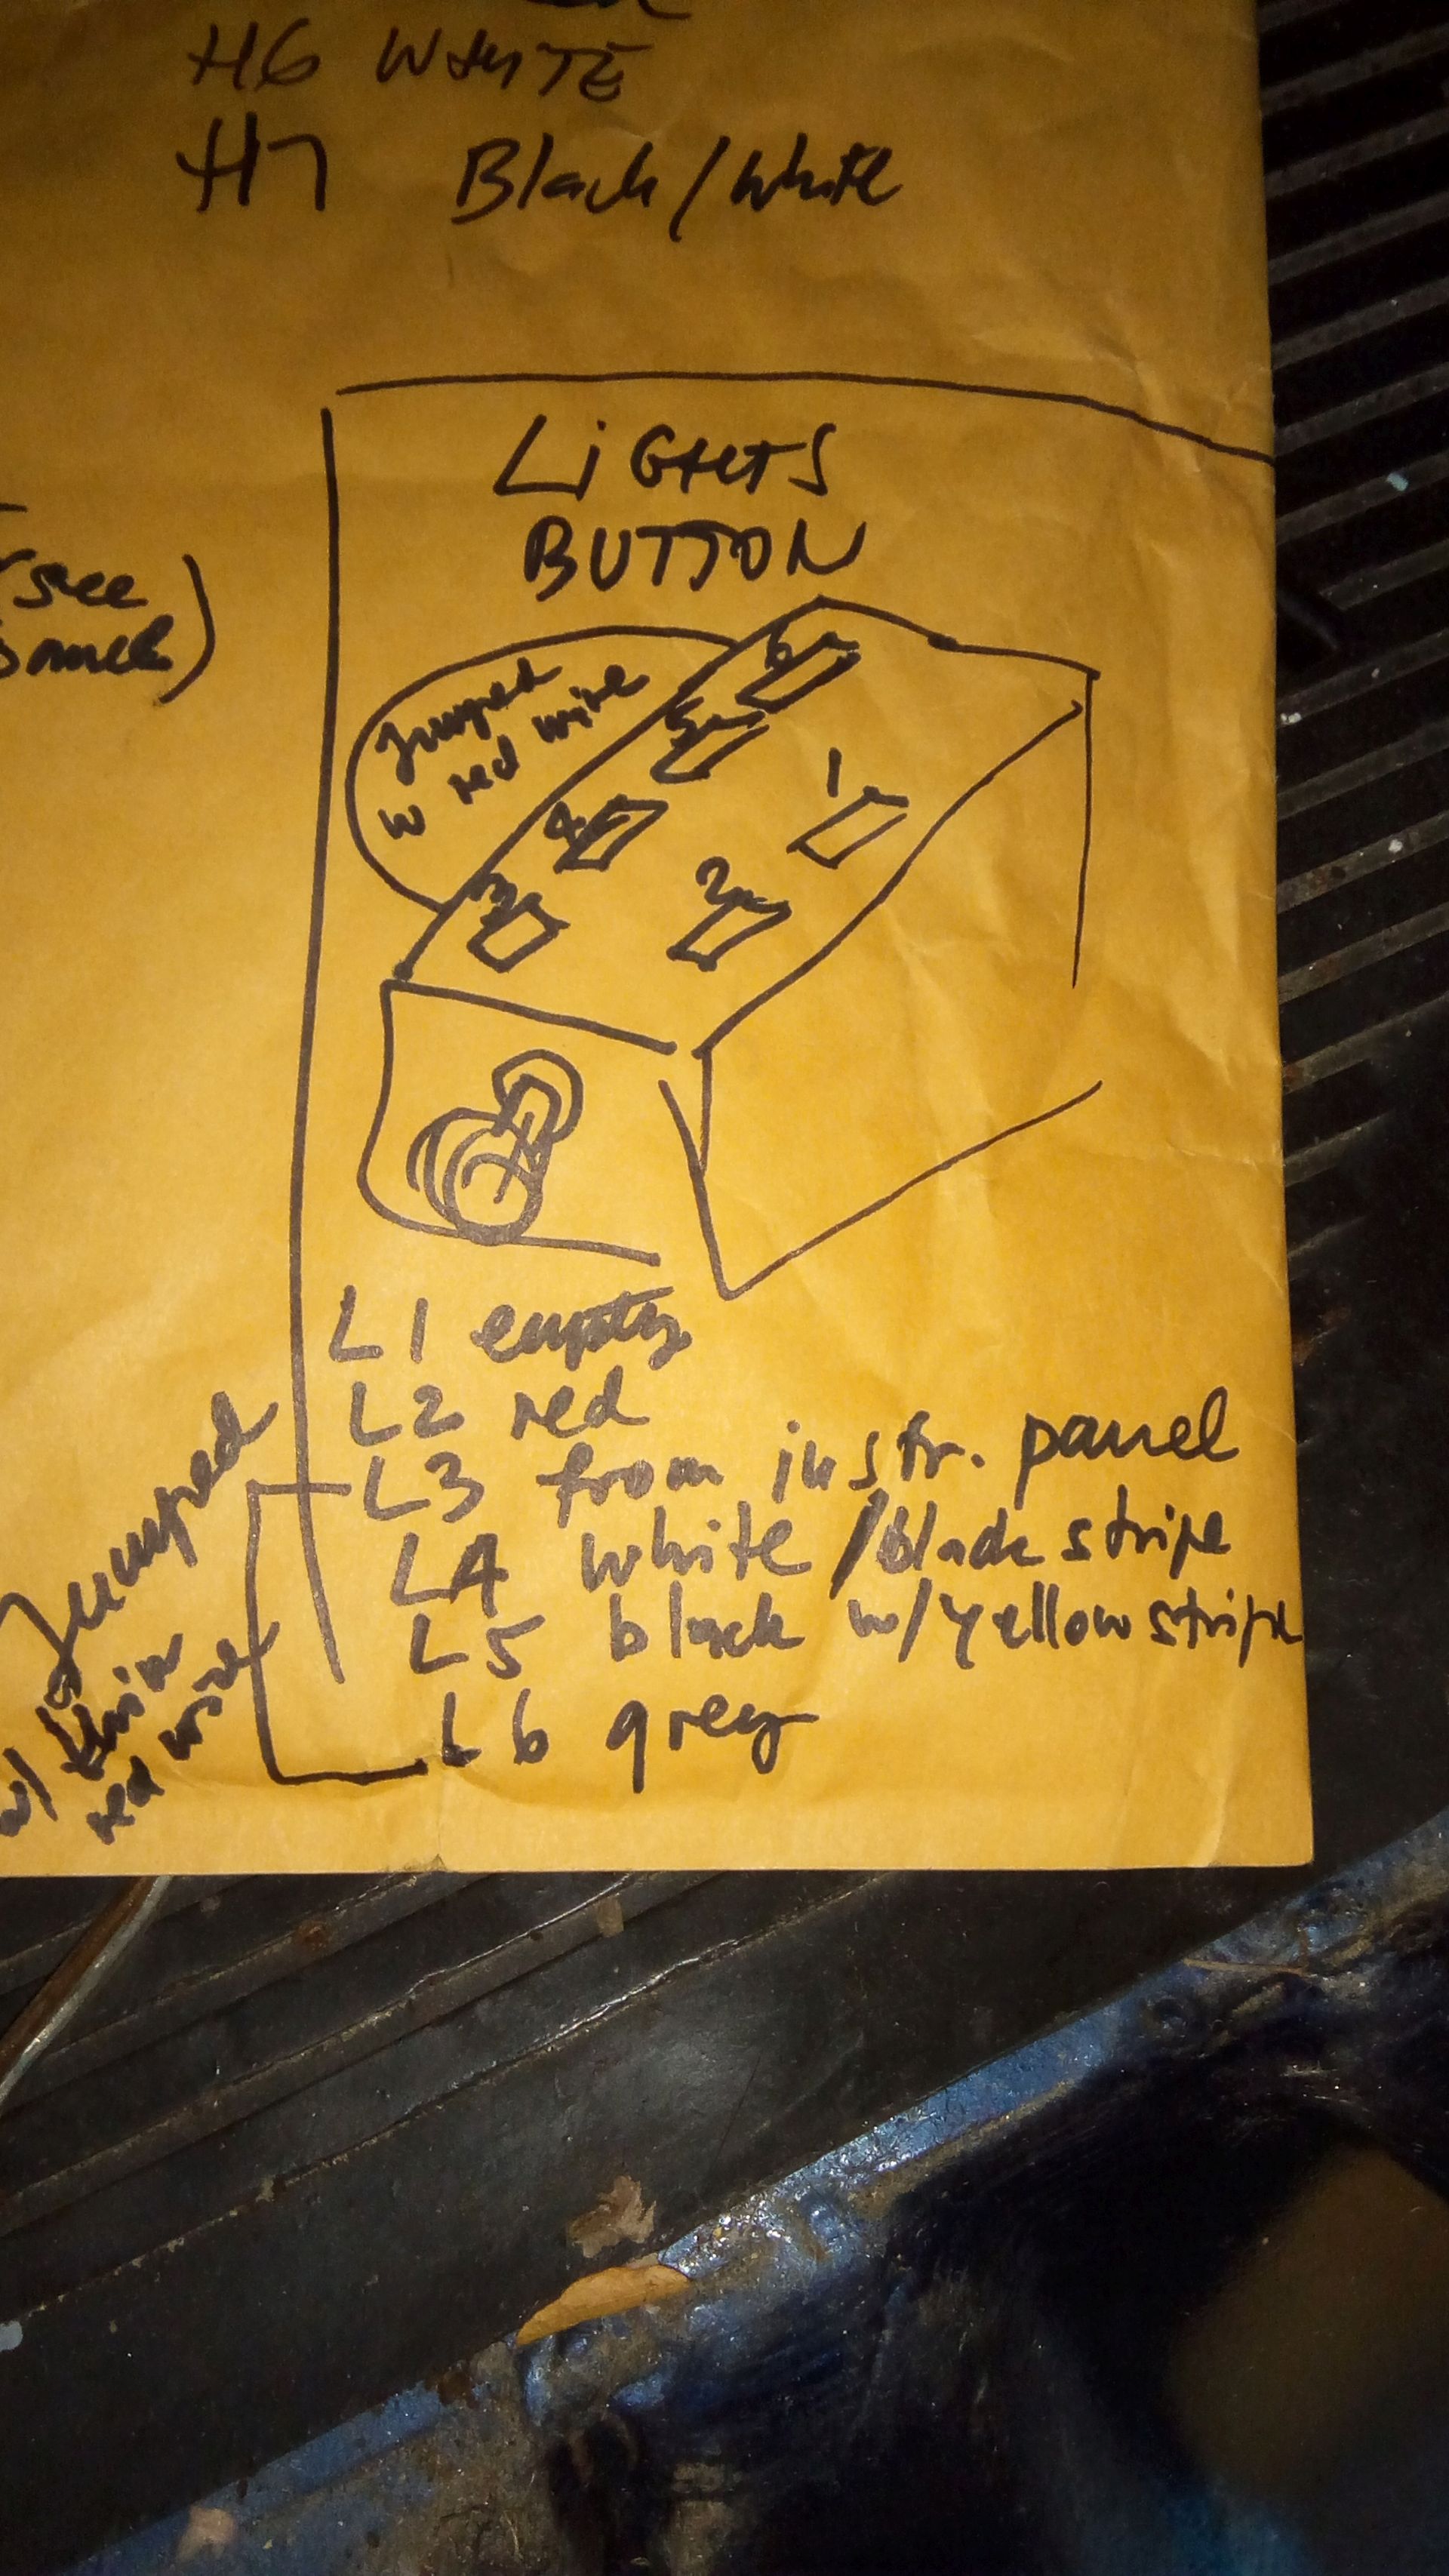 H6 WHITE
H7 Black/White
see
LIGHTS
BUTTON
Jumped
w red wire
6
5
4
1
3
2
L1 empty
L2 red
L3 from instr. panel
L4 white/black stripe
L5 black w/yellow stripe
L6 grey
Jumped
w/ thin
red wire